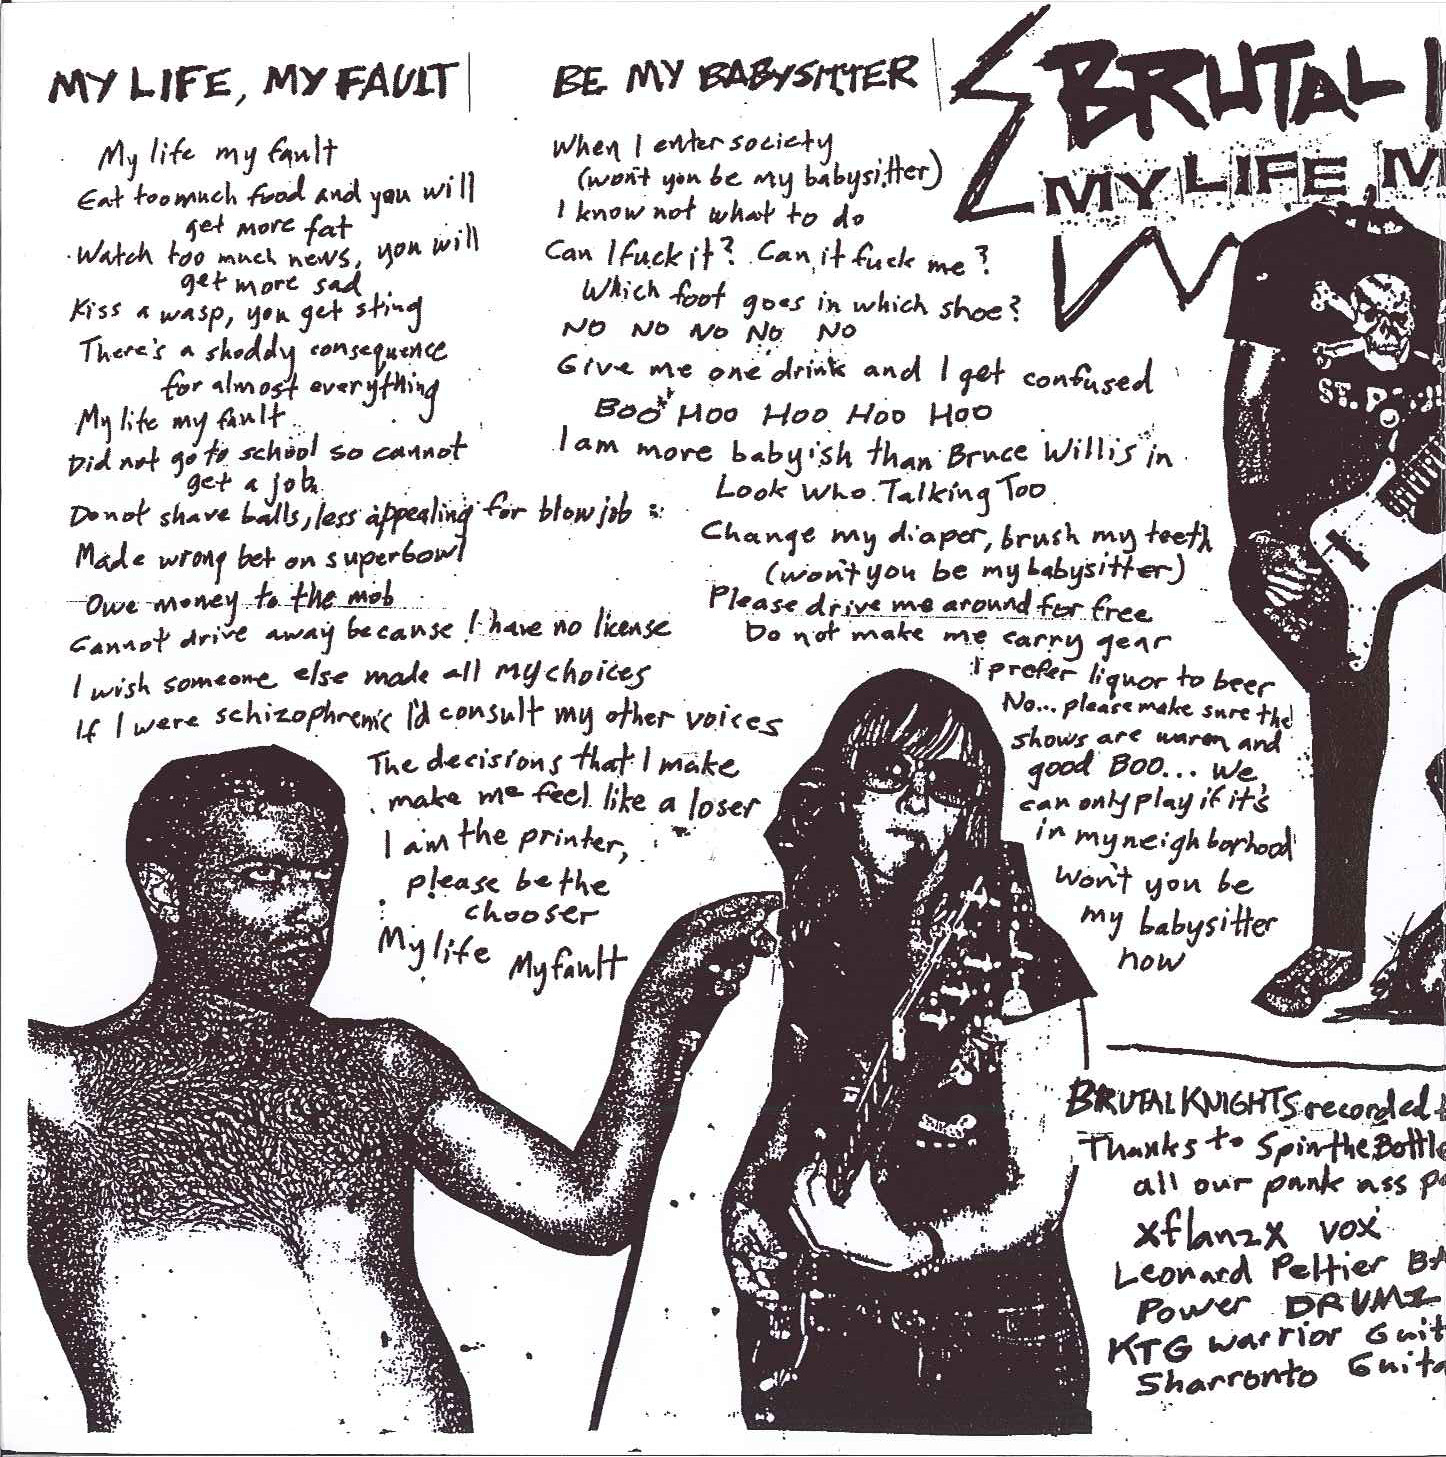 MY LIFE, MY FAULT
My life my fault
Eat too much food and you will
get more fat
Watch too much news, you will
get more sad
Kiss a wasp, you get sting
There's a shoddy consequence
for almost everything
My life my fault
Did not go to school so cannot
get a job
Do not shave balls, less appealing for blow job
Made wrong bet on superbowl
Owe money to the mob
Cannot drive away because I have no license
I wish someone else made all my choices
If I were schizophrenic I'd consult my other voices
The decisions that I make
make me feel like a loser
I am the printer,
please be the
chooser
My life My fault
BE MY BABYSITTER
When I enter society
(won't you be my babysitter)
I know not what to do
Can I fuck it? Can it fuck me?
Which foot goes in which shoe?
NO NO NO NO NO
Give me one drink and I get confused
BOO HOO HOO HOO HOO
I am more babyish than Bruce Willis in
Look Who Talking Too
Change my diaper, brush my teeth
(won't you be my babysitter)
Please drive me around for free
Do not make me carry gear
I prefer liquor to beer
No... please make sure the
shows are warm and
good BOO... We
can only play if it's
in my neighborhood
Won't you be
my babysitter
now
BRUTAL
MY LIFE, M
ST.
BRUTAL KNIGHTS recorded
Thanks to Spin the Bottle
all our punk ass
xflanzx vox
Leonard Peltier BA
Power DRUMZ
KTG Warrior Guit
Sharronto Guita